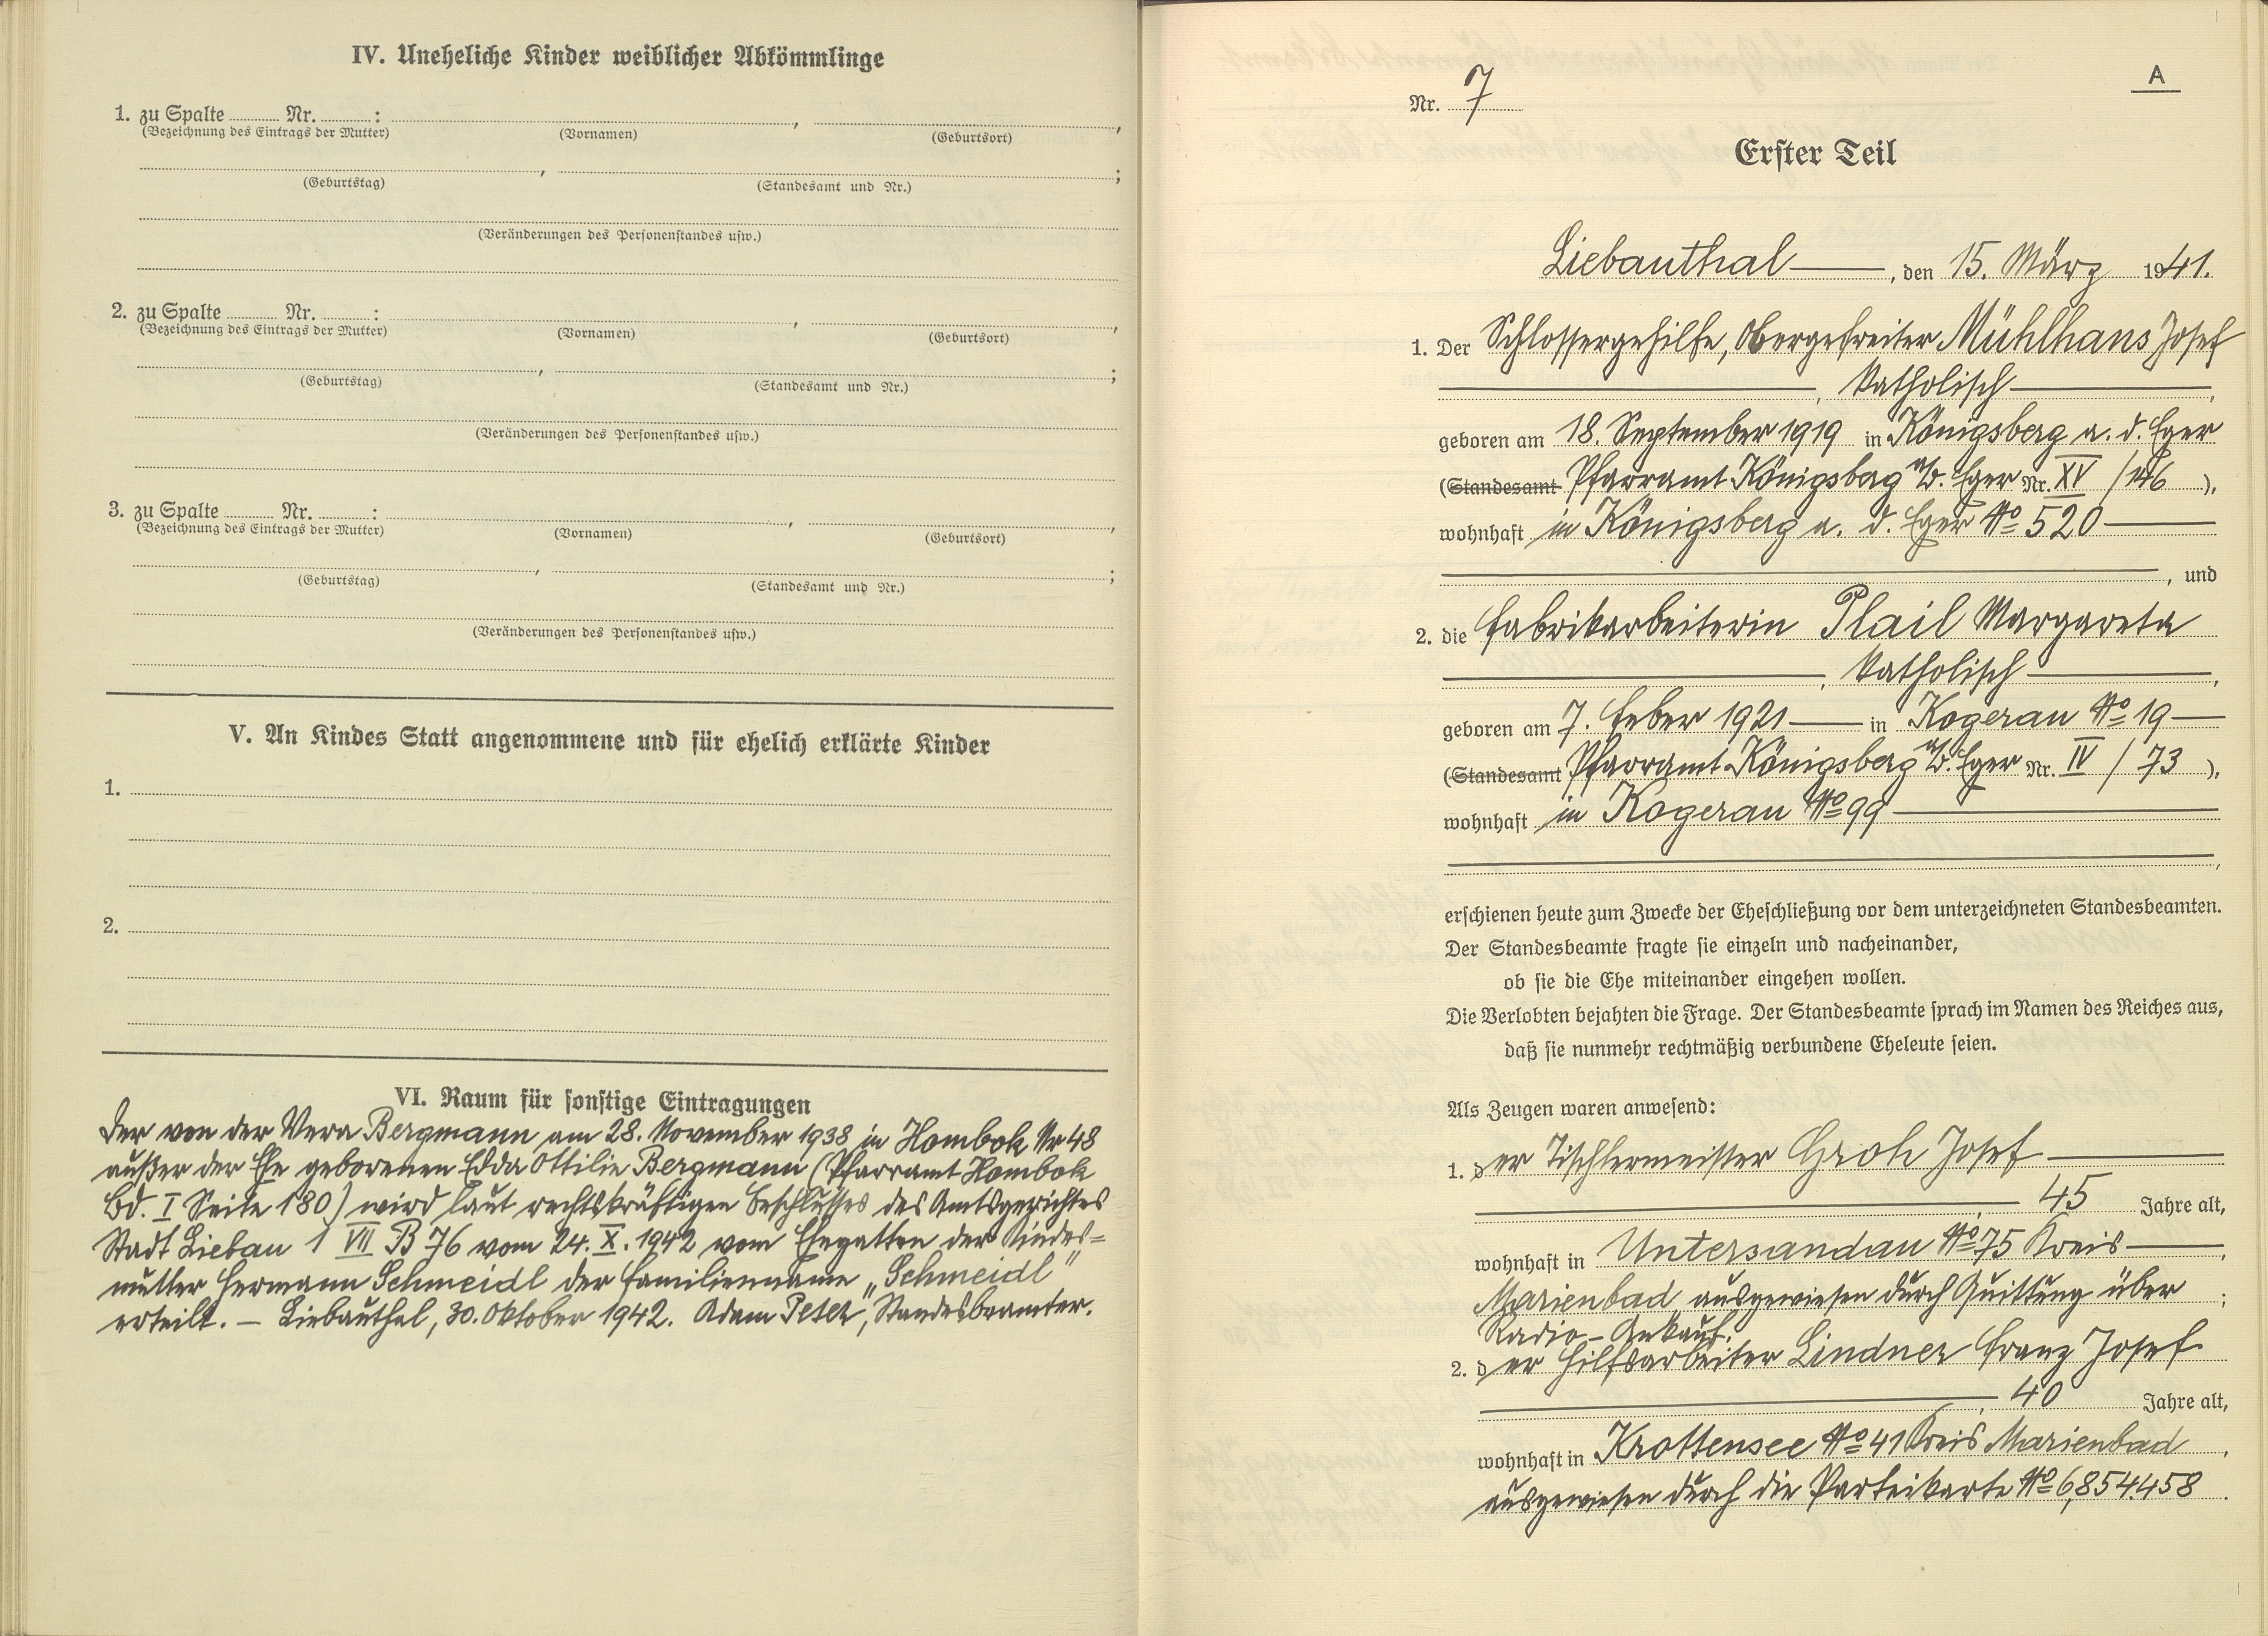 IV. Uneheliche Kinder weiblicher Abkömmlinge
1. zu Spalte ........ Nr. ........ :
(Bezeichnung des Eintrags der Mutter) (Vornamen) , (Geburtsort) ,
(Geburtstag) , (Standesamt und Nr.) ;
(Veränderungen des Personenstandes usw.)
2. zu Spalte ........ Nr. ........ :
(Bezeichnung des Eintrags der Mutter) (Vornamen) , (Geburtsort) ,
(Geburtstag) , (Standesamt und Nr.) ;
(Veränderungen des Personenstandes usw.)
3. zu Spalte ........ Nr. ........ :
(Bezeichnung des Eintrags der Mutter) (Vornamen) , (Geburtsort) ,
(Geburtstag) , (Standesamt und Nr.) ;
(Veränderungen des Personenstandes usw.)
V. An Kindes Statt angenommene und für ehelich erklärte Kinder
1.
2.
VI. Raum für sonstige Eintragungen
Der von der Vera Bergmann am 28. November 1938 in Hombok Nr 48
außer der Ehe geborenen Edda Ottilie Bergmann (Pfarramt Hombok
Bd. I Seite 180) wird laut rechtskräftigen Beschlusses des Amtsgerichtes
Stadt Liebau 1 VII B 76 vom 24. X. 1942 vom Ehegatten der Kindes=
mutter Hermann Schmeidl der Familienname „Schmeidl"
erteilt. — Liebauthal, 30. Oktober 1942. Adam Peter, Standesbeamter.
A
Nr. 7
Erster Teil
Liebauthal, den 15. März 1941.
1. Der Schlossergehilfe, Obergefreiter Mühlhans Josef
, katholisch ,
geboren am 18. September 1919 in Königsberg a. d. Eger
(Standesamt Pfarramt Königsberg a/d. Eger Nr. XV / 146 ),
wohnhaft in Königsberg a. d. Eger No 520
, und
2. die Fabrikarbeiterin Plail Margareta
, katholisch ,
geboren am 7. Feber 1921 in Kogerau No 19
(Standesamt Pfarramt Königsberg a/d. Eger Nr. IV / 73 ),
wohnhaft in Kogerau No 99
,
erschienen heute zum Zwecke der Eheschließung vor dem unterzeichneten Standesbeamten.
Der Standesbeamte fragte sie einzeln und nacheinander,
ob sie die Ehe miteinander eingehen wollen.
Die Verlobten bejahten die Frage. Der Standesbeamte sprach im Namen des Reiches aus,
daß sie nunmehr rechtmäßig verbundene Eheleute seien.
Als Zeugen waren anwesend:
1. der Tischlermeister Groh Josef
, 45 Jahre alt,
wohnhaft in Untersandau No 75 Kreis ,
Marienbad, ausgewiesen durch Quittung über ;
Radio-Ankauf.
2. der Hilfsarbeiter Lindner Franz Josef
, 40 Jahre alt,
wohnhaft in Krottensee No 41 Kreis Marienbad ,
ausgewiesen durch die Parteikarte No 6,854.458 .